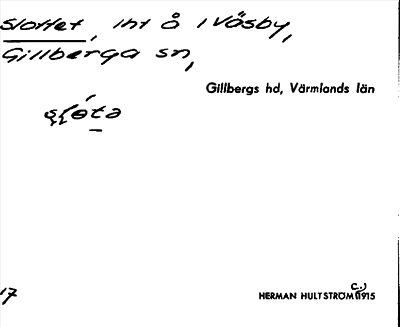 Slottet, int å i Väsby,
Gillberga sn,
Gillbergs hd, Värmlands län
17
HERMAN HULTSTRÖM (C.) 1915